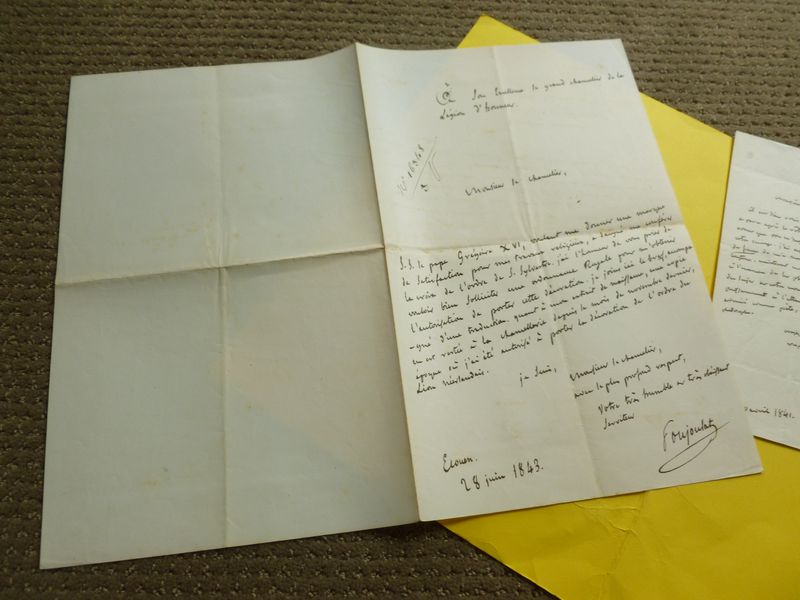 À Son Excellence le grand chancelier de la
Légion d'honneur.
N° 16948
Monsieur le chancelier,
S. S. le pape Grégoire XVI, voulant me donner une marque
de satisfaction pour mes travaux religieux, a daigné me conférer
la croix de l'ordre de S. Sylvestre. j'ai l'honneur de vous prier de
vouloir bien solliciter une ordonnance Royale pour obtenir
l'autorisation de porter cette décoration. je joins ici le bref, accompa
-gné d'une traduction. quant à mon extrait de naissance, une copie
en est restée à la chancellerie depuis le mois de novembre dernier,
époque où j'ai été autorisé à porter la décoration de l'ordre du
Lion néerlandais.
je suis, Monsieur le chancelier,
avec le plus profond respect,
votre très humble et très obéissant
serviteur
Poujoulat
Ecouen.
28 juin 1843.
avril 1841.